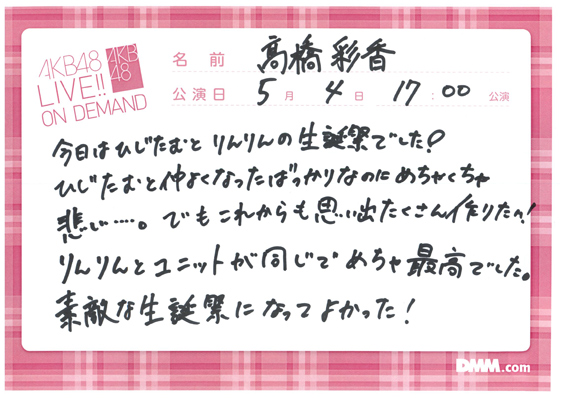 AKB48
LIVE!!
ON DEMAND
AKB
48
名前 高橋彩香
公演日 5月4日 17:00 公演
今日はひじたむと りんりんの生誕祭でした!
ひじたむと仲よくなったばっかりなのにめちゃくちゃ
悲しい……。でもこれからも思い出たくさん作りたい!
りんりんとユニットが同じで めちゃ最高でした。
素敵な生誕祭になってよかった!
DMM.com